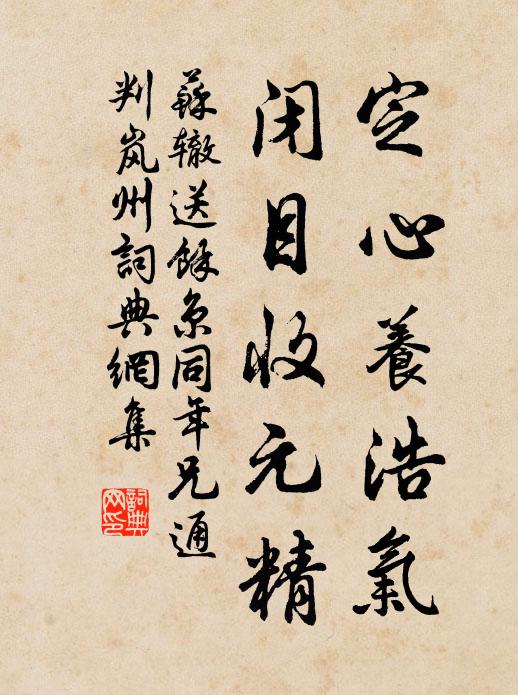 定心養浩氣
闭目收元精
蘇辙送餘京同年兄通
判岚州詞典網集
詞典网印